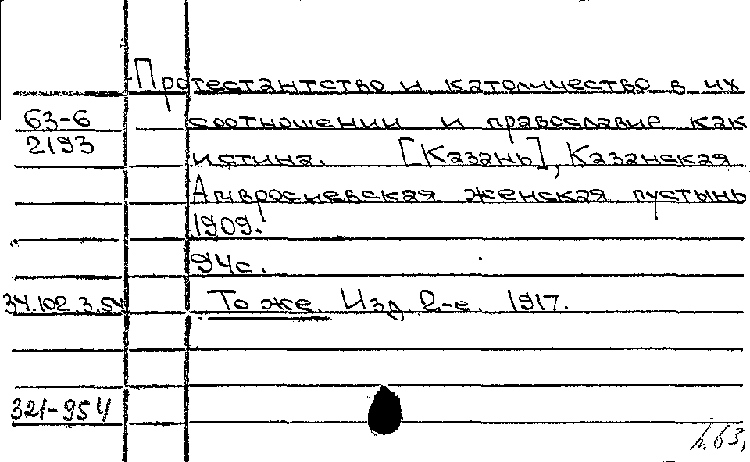 Протестантство и католичество в их
63-6 соотношении и православие как
2193 истина. [Казань], Казанская
Амвросиевская женская пустынь
1909.
94с.
34.102.3.54 То же. Изд. 2-е. 1917.
321-954